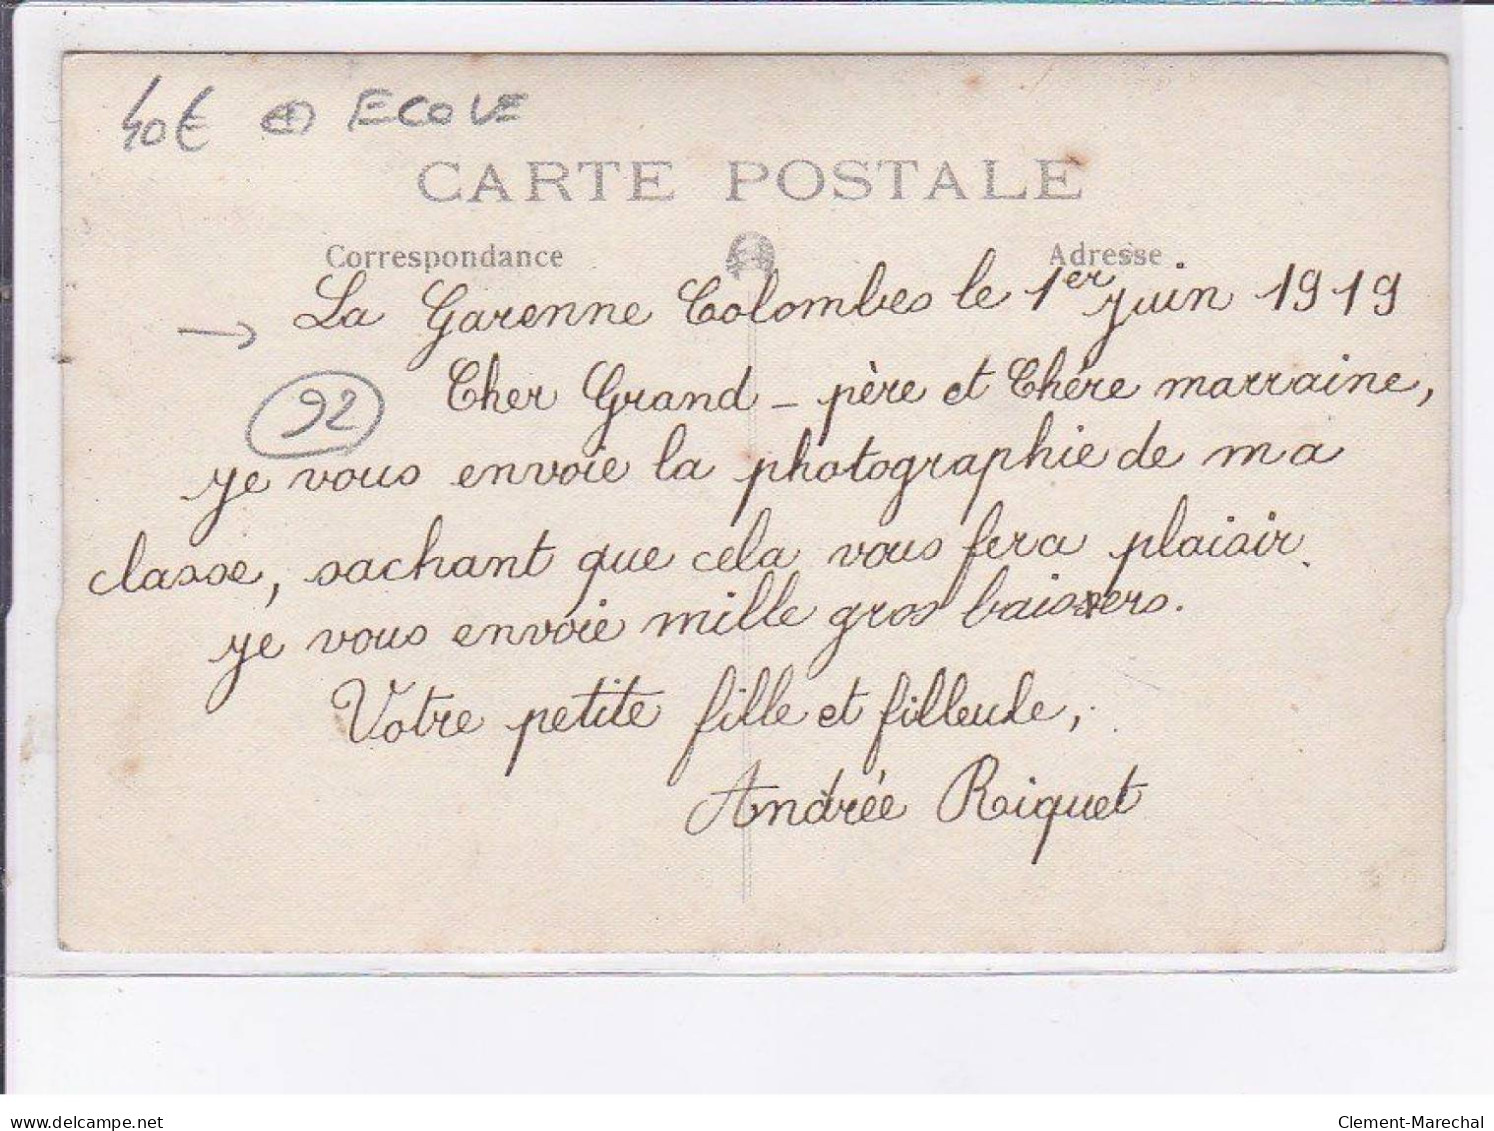 40€ ECOLE
CARTE POSTALE
Correspondance Adresse
La Garenne Colombes le 1er juin 1919
→
92
Cher Grand-père et Chère marraine,
je vous envoie la photographie de ma
classe, sachant que cela vous fera plaisir.
je vous envoie mille gros baisers.
Votre petite fille et filleule,
Andrée Riquet
www.delcampe.net Clement-Marechal